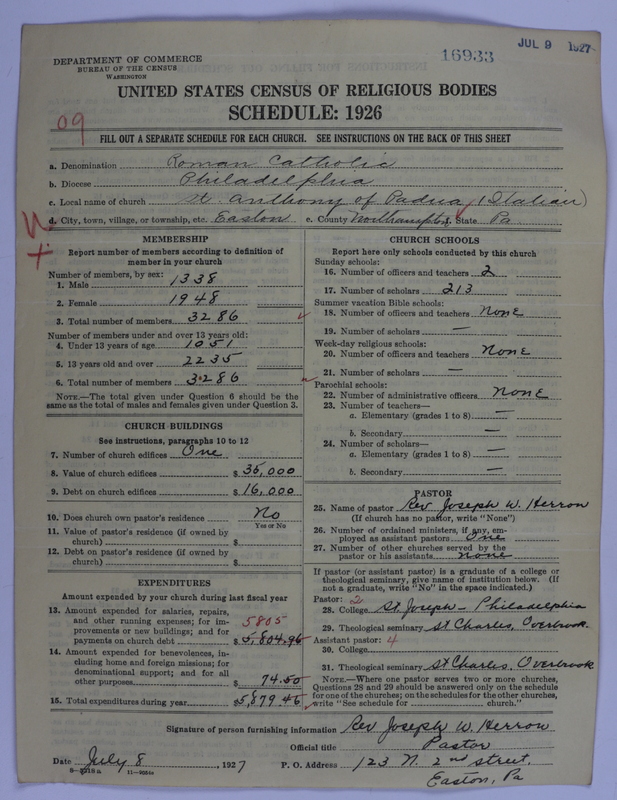 DEPARTMENT OF COMMERCE
BUREAU OF THE CENSUS
WASHINGTON
16933
JUL 9 1927
UNITED STATES CENSUS OF RELIGIOUS BODIES
SCHEDULE: 1926
09
FILL OUT A SEPARATE SCHEDULE FOR EACH CHURCH. SEE INSTRUCTIONS ON THE BACK OF THIS SHEET
a. Denomination Roman Catholic
b. Diocese Philadelphia
c. Local name of church St. Anthony of Padua (Italian)
d. City, town, village, or township, etc. Easton e. County Northampton f. State Pa.
MEMBERSHIP
Report number of members according to definition of
member in your church
Number of members, by sex:
1. Male 1338
2. Female 1948
3. Total number of members 3286
Number of members under and over 13 years old:
4. Under 13 years of age 1051
5. 13 years old and over 2235
6. Total number of members 3286
NOTE.—The total given under Question 6 should be the
same as the total of males and females given under Question 3.
CHURCH BUILDINGS
See instructions, paragraphs 10 to 12
7. Number of church edifices One
8. Value of church edifices $ 35,000
9. Debt on church edifices $ 16,000
10. Does church own pastor's residence No
Yes or No
11. Value of pastor's residence (if owned by
church) $
12. Debt on pastor's residence (if owned by
church) $
EXPENDITURES
Amount expended by your church during last fiscal year
13. Amount expended for salaries, repairs,
and other running expenses; for im-
provements or new buildings; and for
payments on church debt $ 5,804.95
5805
14. Amount expended for benevolences, in-
cluding home and foreign missions; for
denominational support; and for all
other purposes $ 74.50
15. Total expenditures during year $ 5,879.45
CHURCH SCHOOLS
Report here only schools conducted by this church
Sunday schools:
16. Number of officers and teachers 2
17. Number of scholars 213
Summer vacation Bible schools:
18. Number of officers and teachers None
19. Number of scholars —
Week-day religious schools:
20. Number of officers and teachers None
21. Number of scholars —
Parochial schools:
22. Number of administrative officers None
23. Number of teachers—
a. Elementary (grades 1 to 8) —
b. Secondary —
24. Number of scholars—
a. Elementary (grades 1 to 8) —
b. Secondary —
PASTOR
25. Name of pastor Rev Joseph W. Herron
(If church has no pastor, write "None")
26. Number of ordained ministers, if any, em-
ployed as assistant pastors One
27. Number of other churches served by the
pastor or his assistants none
If pastor (or assistant pastor) is a graduate of a college or
theological seminary, give name of institution below. (If
not a graduate, write "No" in the space indicated.)
Pastor: 2
28. College St Joseph - Philadelphia
29. Theological seminary St Charles, Overbrook.
Assistant pastor: 4
30. College
31. Theological seminary St Charles, Overbrook
NOTE.—Where one pastor serves two or more churches,
Questions 28 and 29 should be answered only on the schedule
for one of the churches; on the schedules for the other churches,
write "See schedule for church."
Signature of person furnishing information Rev Joseph W. Herron
Official title Pastor
Date July 8, 1927 P. O. Address 123 N. 2nd street,
8—3218a 11—9054c
Easton, Pa